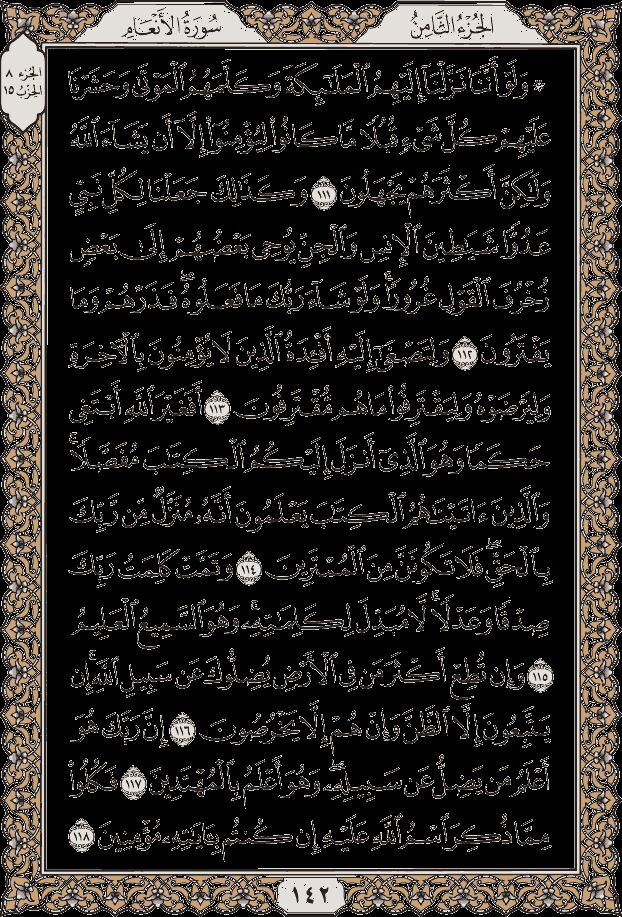 الجُزْءُ الثَّامِنُ
سُورَةُ الأَنْعَامِ
الجزء ٨
الحزب ١٥
۞ وَلَوْ أَنَّنَا نَزَّلْنَا إِلَيْهِمُ ٱلْمَلَٰٓئِكَةَ وَكَلَّمَهُمُ ٱلْمَوْتَىٰ وَحَشَرْنَا
عَلَيْهِمْ كُلَّ شَىْءٍ قُبُلًا مَّا كَانُوا۟ لِيُؤْمِنُوٓا۟ إِلَّآ أَن يَشَآءَ ٱللَّهُ
وَلَٰكِنَّ أَكْثَرَهُمْ يَجْهَلُونَ ١١١ وَكَذَٰلِكَ جَعَلْنَا لِكُلِّ نَبِىٍّ
عَدُوًّا شَيَٰطِينَ ٱلْإِنسِ وَٱلْجِنِّ يُوحِى بَعْضُهُمْ إِلَىٰ بَعْضٍ
زُخْرُفَ ٱلْقَوْلِ غُرُورًا ۚ وَلَوْ شَآءَ رَبُّكَ مَا فَعَلُوهُ ۖ فَذَرْهُمْ وَمَا
يَفْتَرُونَ ١١٢ وَلِتَصْغَىٰٓ إِلَيْهِ أَفْـِٔدَةُ ٱلَّذِينَ لَا يُؤْمِنُونَ بِٱلْءَاخِرَةِ
وَلِيَرْضَوْهُ وَلِيَقْتَرِفُوا۟ مَا هُم مُّقْتَرِفُونَ ١١٣ أَفَغَيْرَ ٱللَّهِ أَبْتَغِى
حَكَمًا وَهُوَ ٱلَّذِىٓ أَنزَلَ إِلَيْكُمُ ٱلْكِتَٰبَ مُفَصَّلًا ۚ
وَٱلَّذِينَ ءَاتَيْنَٰهُمُ ٱلْكِتَٰبَ يَعْلَمُونَ أَنَّهُۥ مُنَزَّلٌ مِّن رَّبِّكَ
بِٱلْحَقِّ ۖ فَلَا تَكُونَنَّ مِنَ ٱلْمُمْتَرِينَ ١١٤ وَتَمَّتْ كَلِمَتُ رَبِّكَ
صِدْقًا وَعَدْلًا ۚ لَّا مُبَدِّلَ لِكَلِمَٰتِهِۦ ۚ وَهُوَ ٱلسَّمِيعُ ٱلْعَلِيمُ
١١٥ وَإِن تُطِعْ أَكْثَرَ مَن فِى ٱلْأَرْضِ يُضِلُّوكَ عَن سَبِيلِ ٱللَّهِ ۚ إِن
يَتَّبِعُونَ إِلَّا ٱلظَّنَّ وَإِنْ هُمْ إِلَّا يَخْرُصُونَ ١١٦ إِنَّ رَبَّكَ هُوَ
أَعْلَمُ مَن يَضِلُّ عَن سَبِيلِهِۦ ۖ وَهُوَ أَعْلَمُ بِٱلْمُهْتَدِينَ ١١٧ فَكُلُوا۟
مِمَّا ذُكِرَ ٱسْمُ ٱللَّهِ عَلَيْهِ إِن كُنتُم بِـَٔايَٰتِهِۦ مُؤْمِنِينَ ١١٨
١٤٢